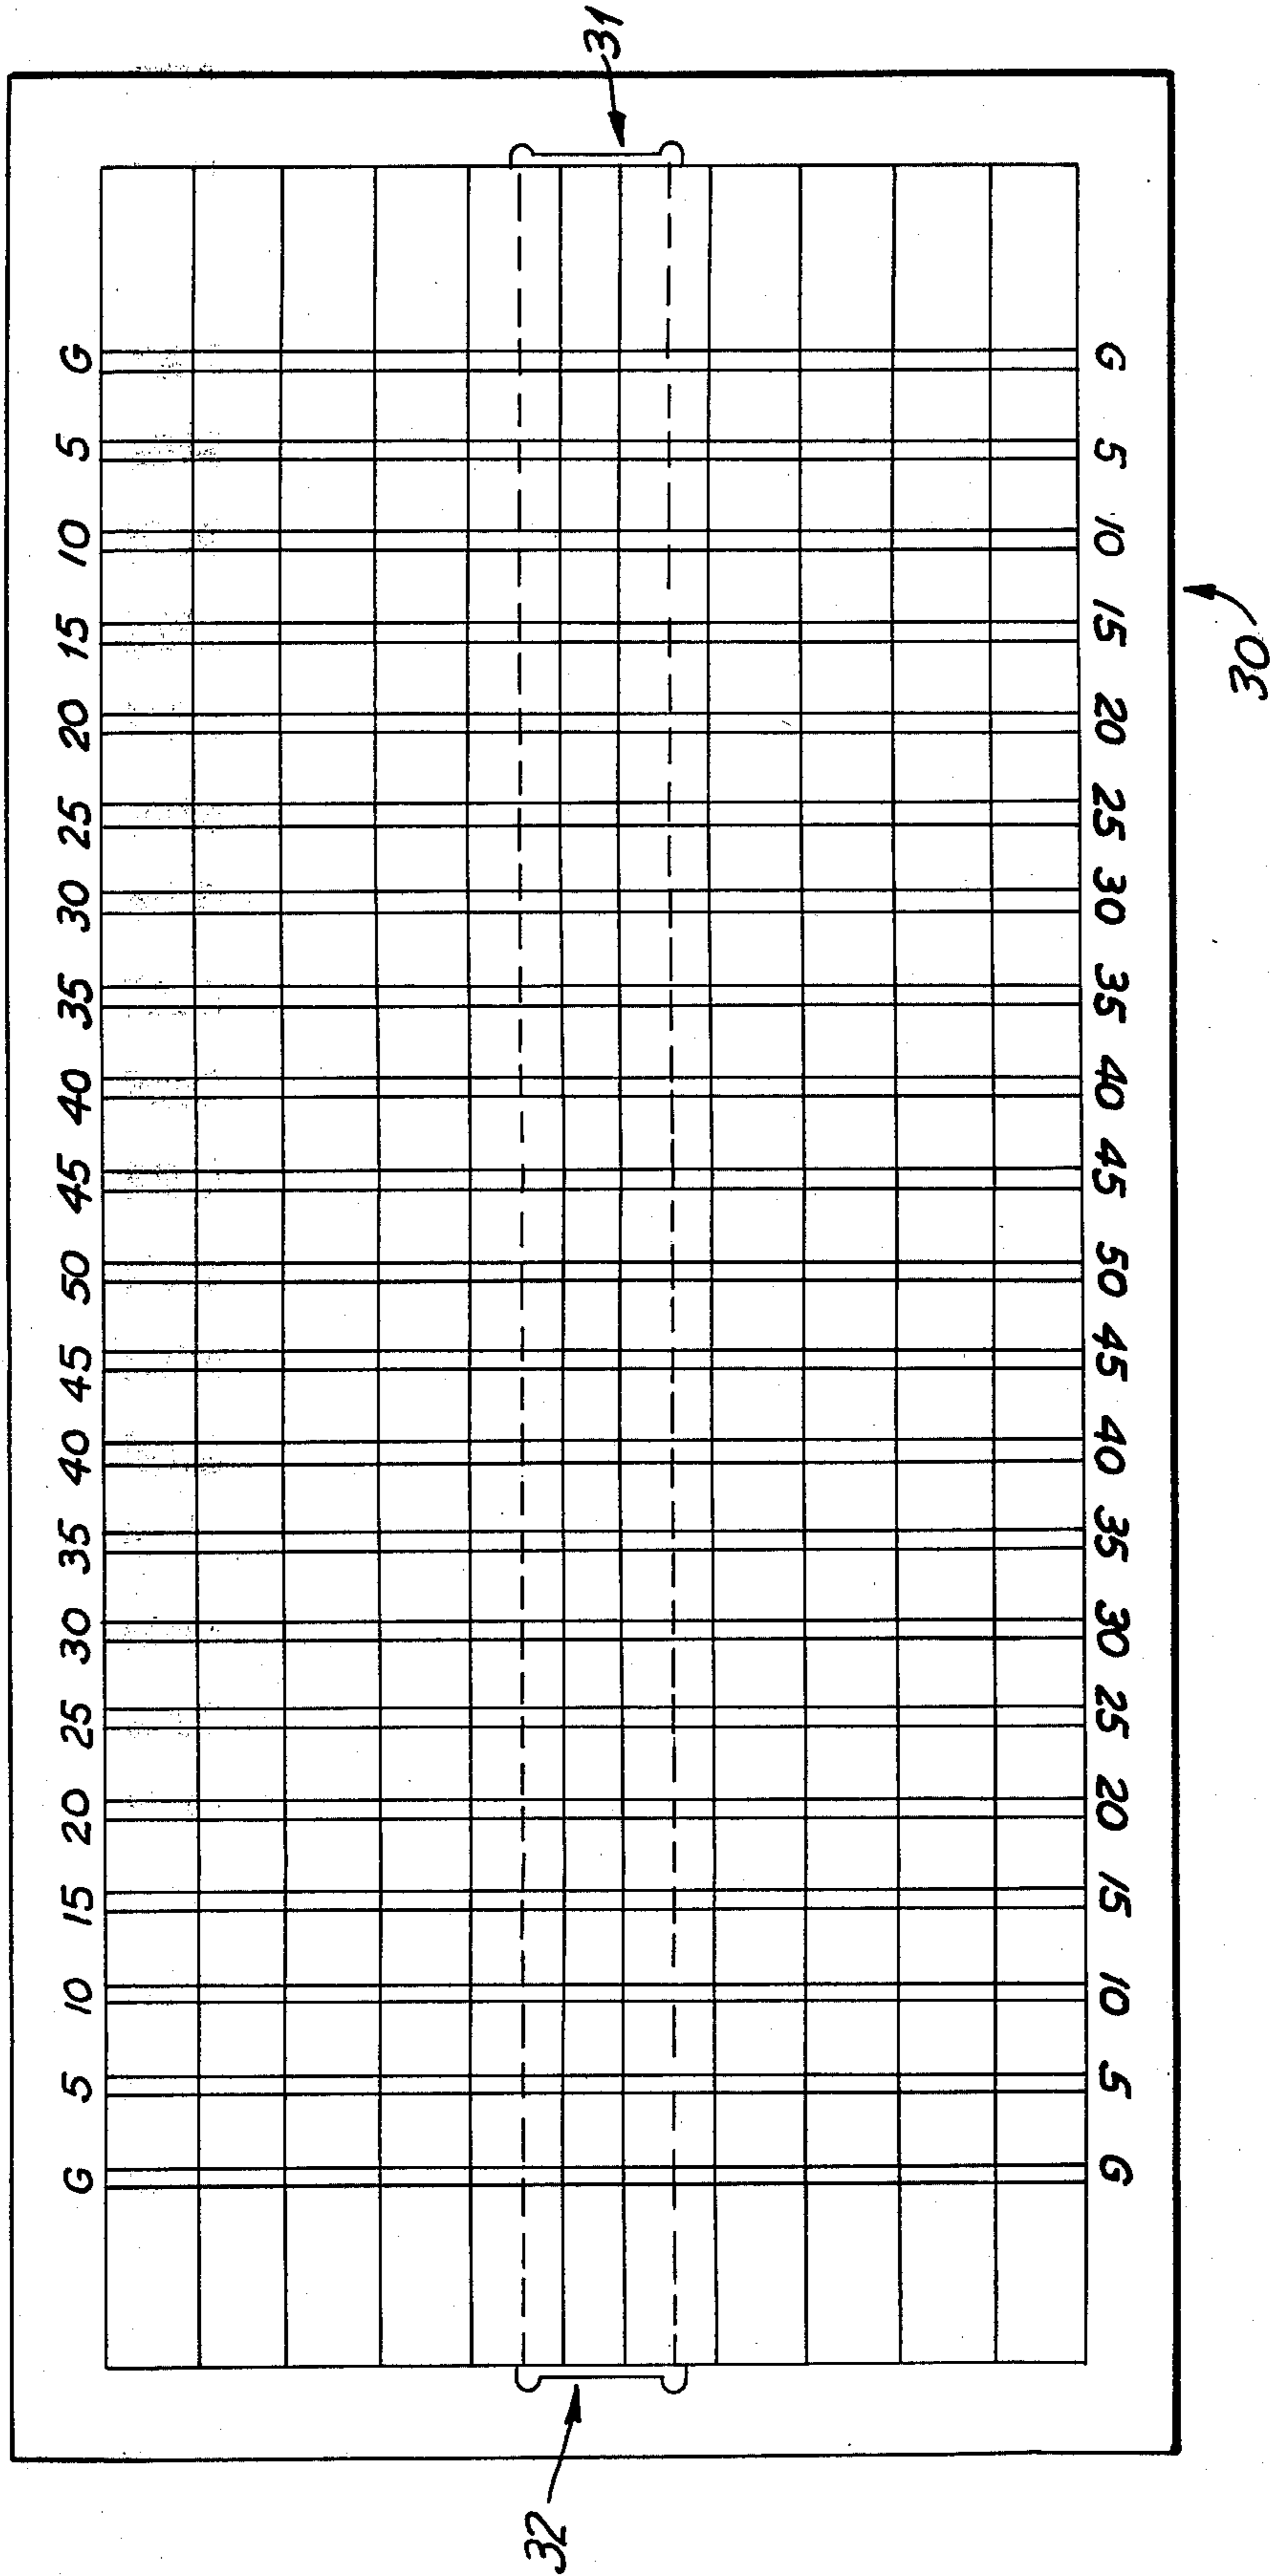 G 5 10 15 20 25 30 35 40 45 50 45 40 35 30 25 20 15 10 5 G
32
31
G 5 10 15 20 25 30 35 40 45 50 45 40 35 30 25 20 15 10 5 G
30